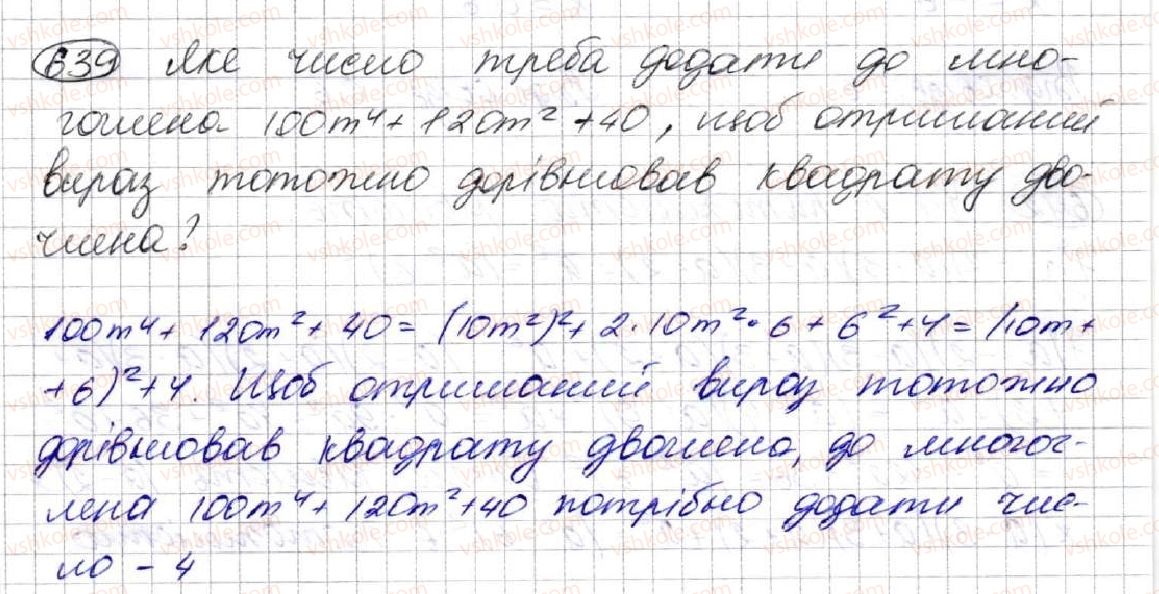 639 Яке число треба додати до мно-
гочлена 100m⁴ + 120m² + 40, щоб отриманий
вираз тотожно дорівнював квадрату дво-
члена?
100m⁴ + 120m² + 40 = (10m²)² + 2·10m²·6 + 6² + 4 = (10m +
+6)² + 4. Щоб отриманий вираз тотожно
дорівнював квадрату двочлена, до многоч-
лена 100m⁴ + 120m² + 40 потрібно додати чис-
ло - 4